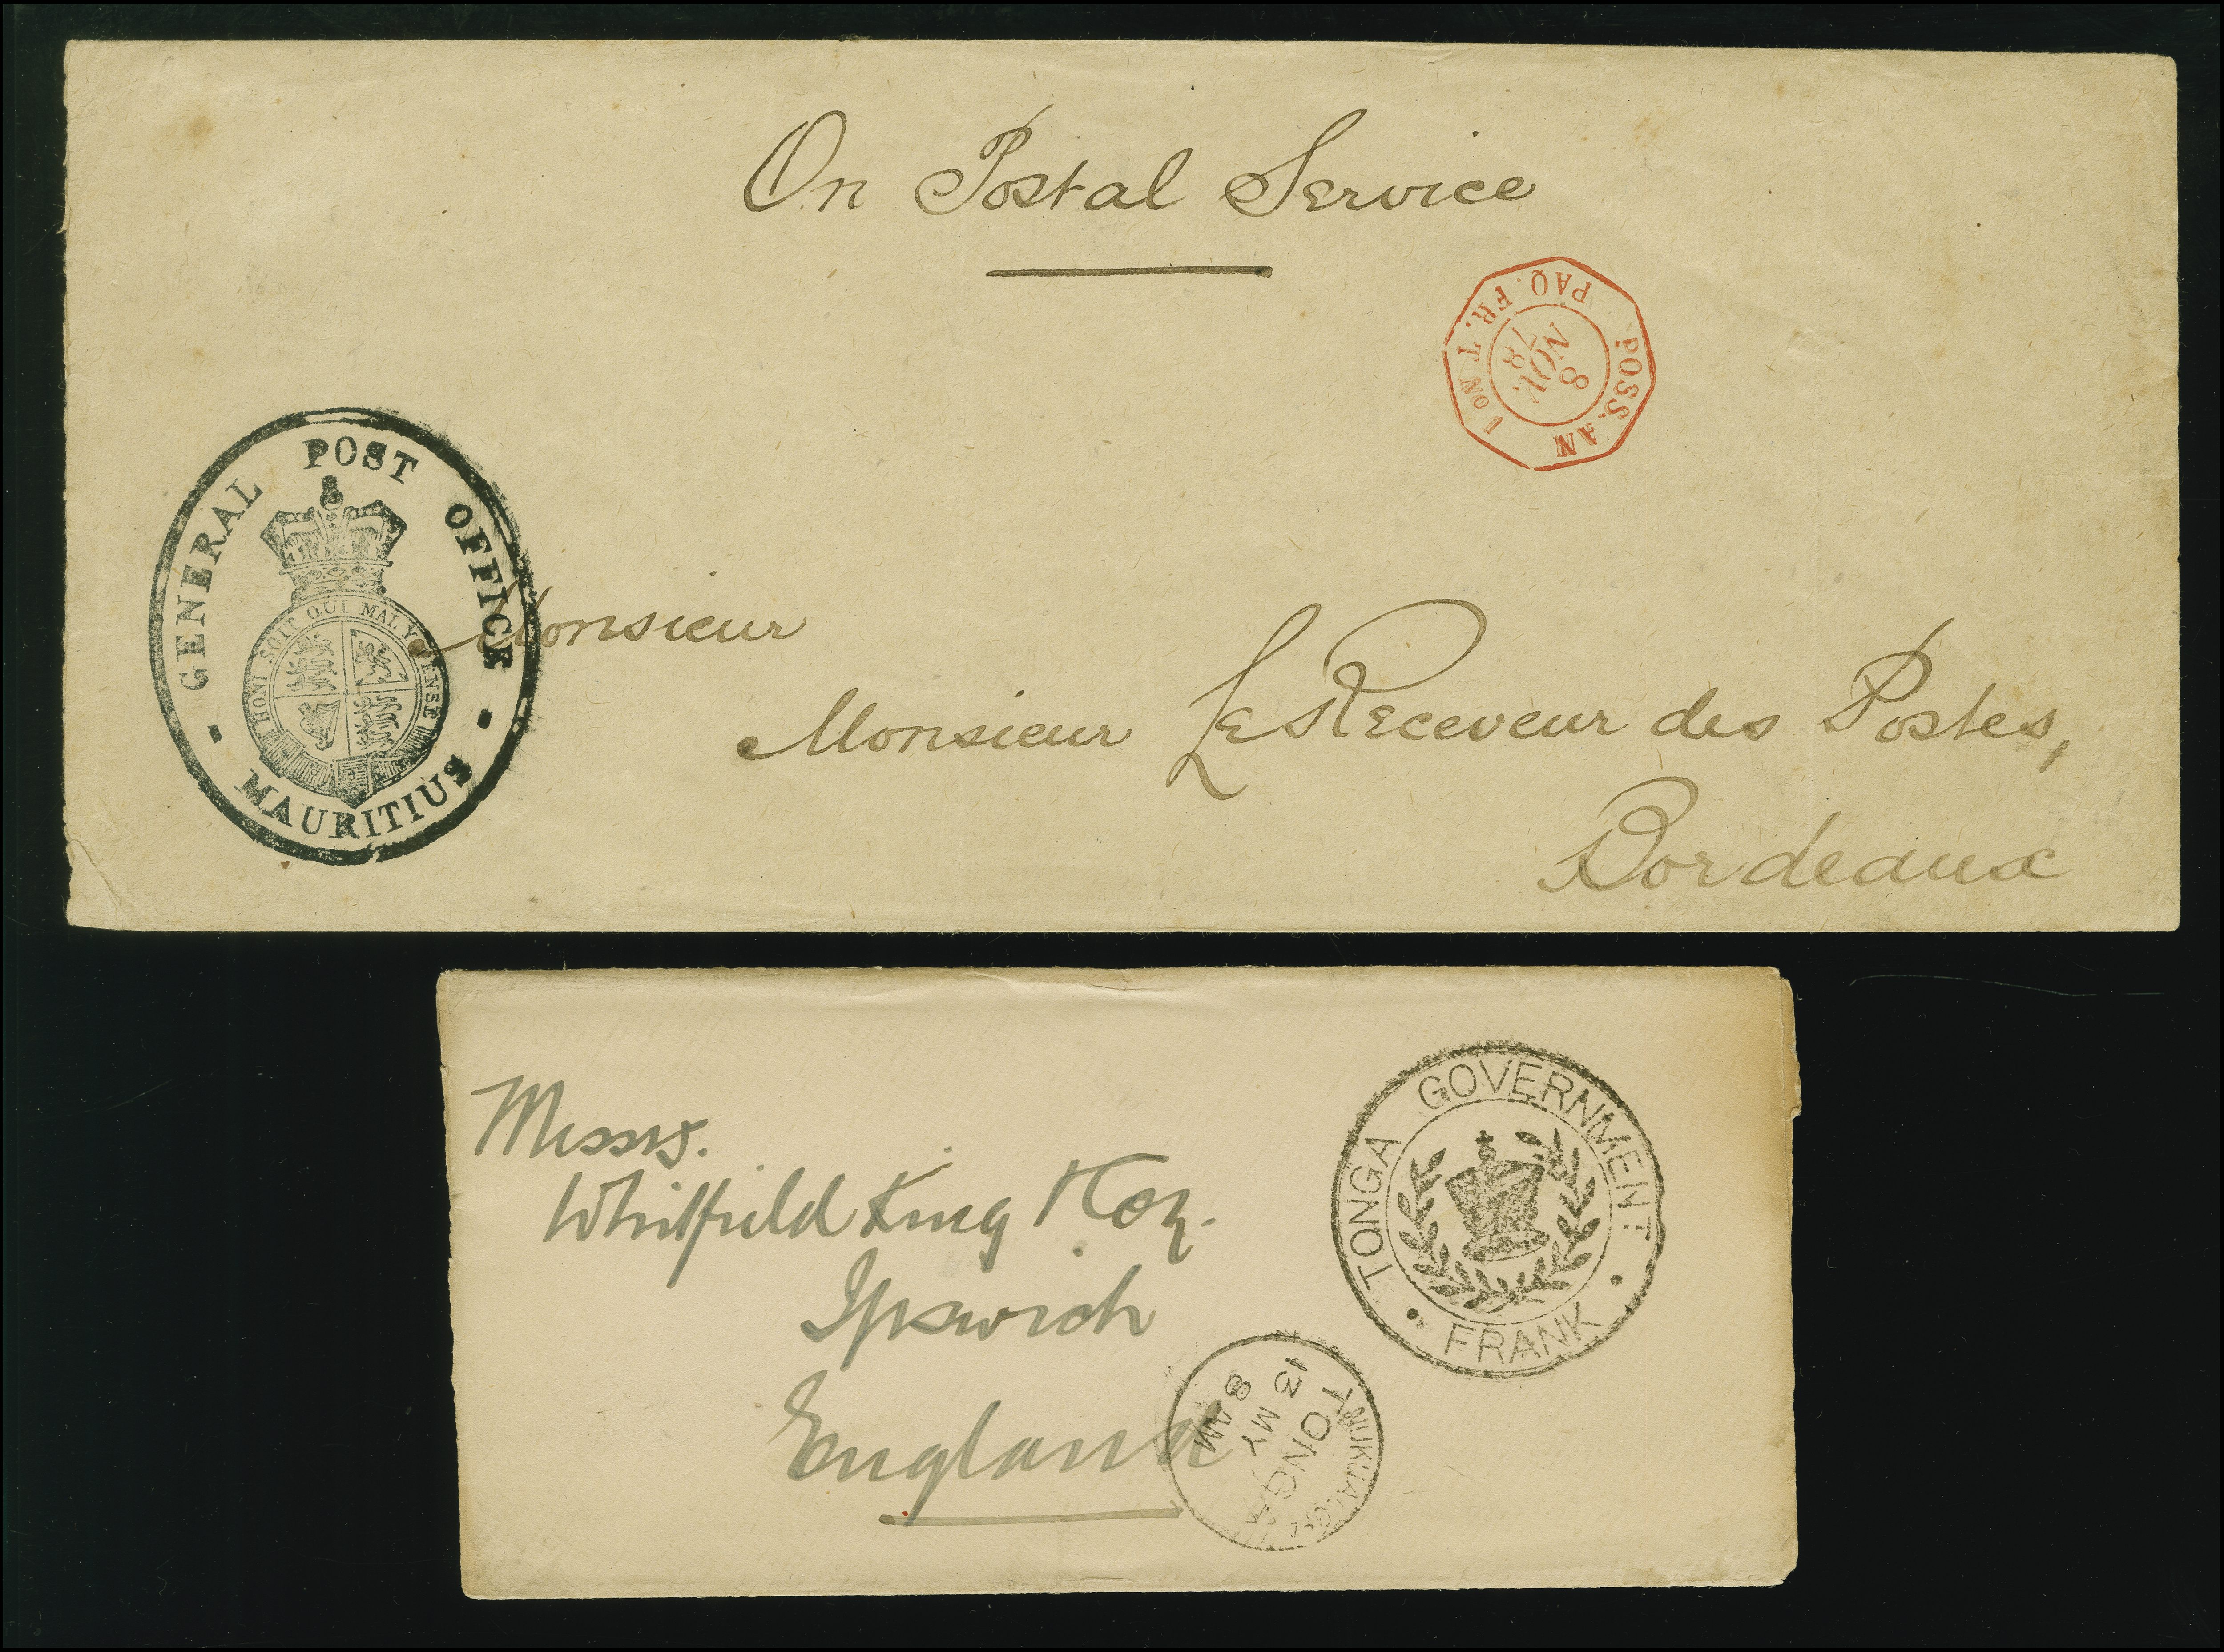 On Postal Service
POSS. AN PAQ. FR. T No 1
8
NOV.
78
GENERAL POST OFFICE
HONI SOIT QUI MAL Y PENSE
MAURITIUS
Monsieur
Monsieur Le Receveur des Postes,
Bordeaux
Messrs.
Whitfield King & Co.
Ipswich
England
TONGA GOVERNMENT
FRANK
TONGA
13 MY
8 AM